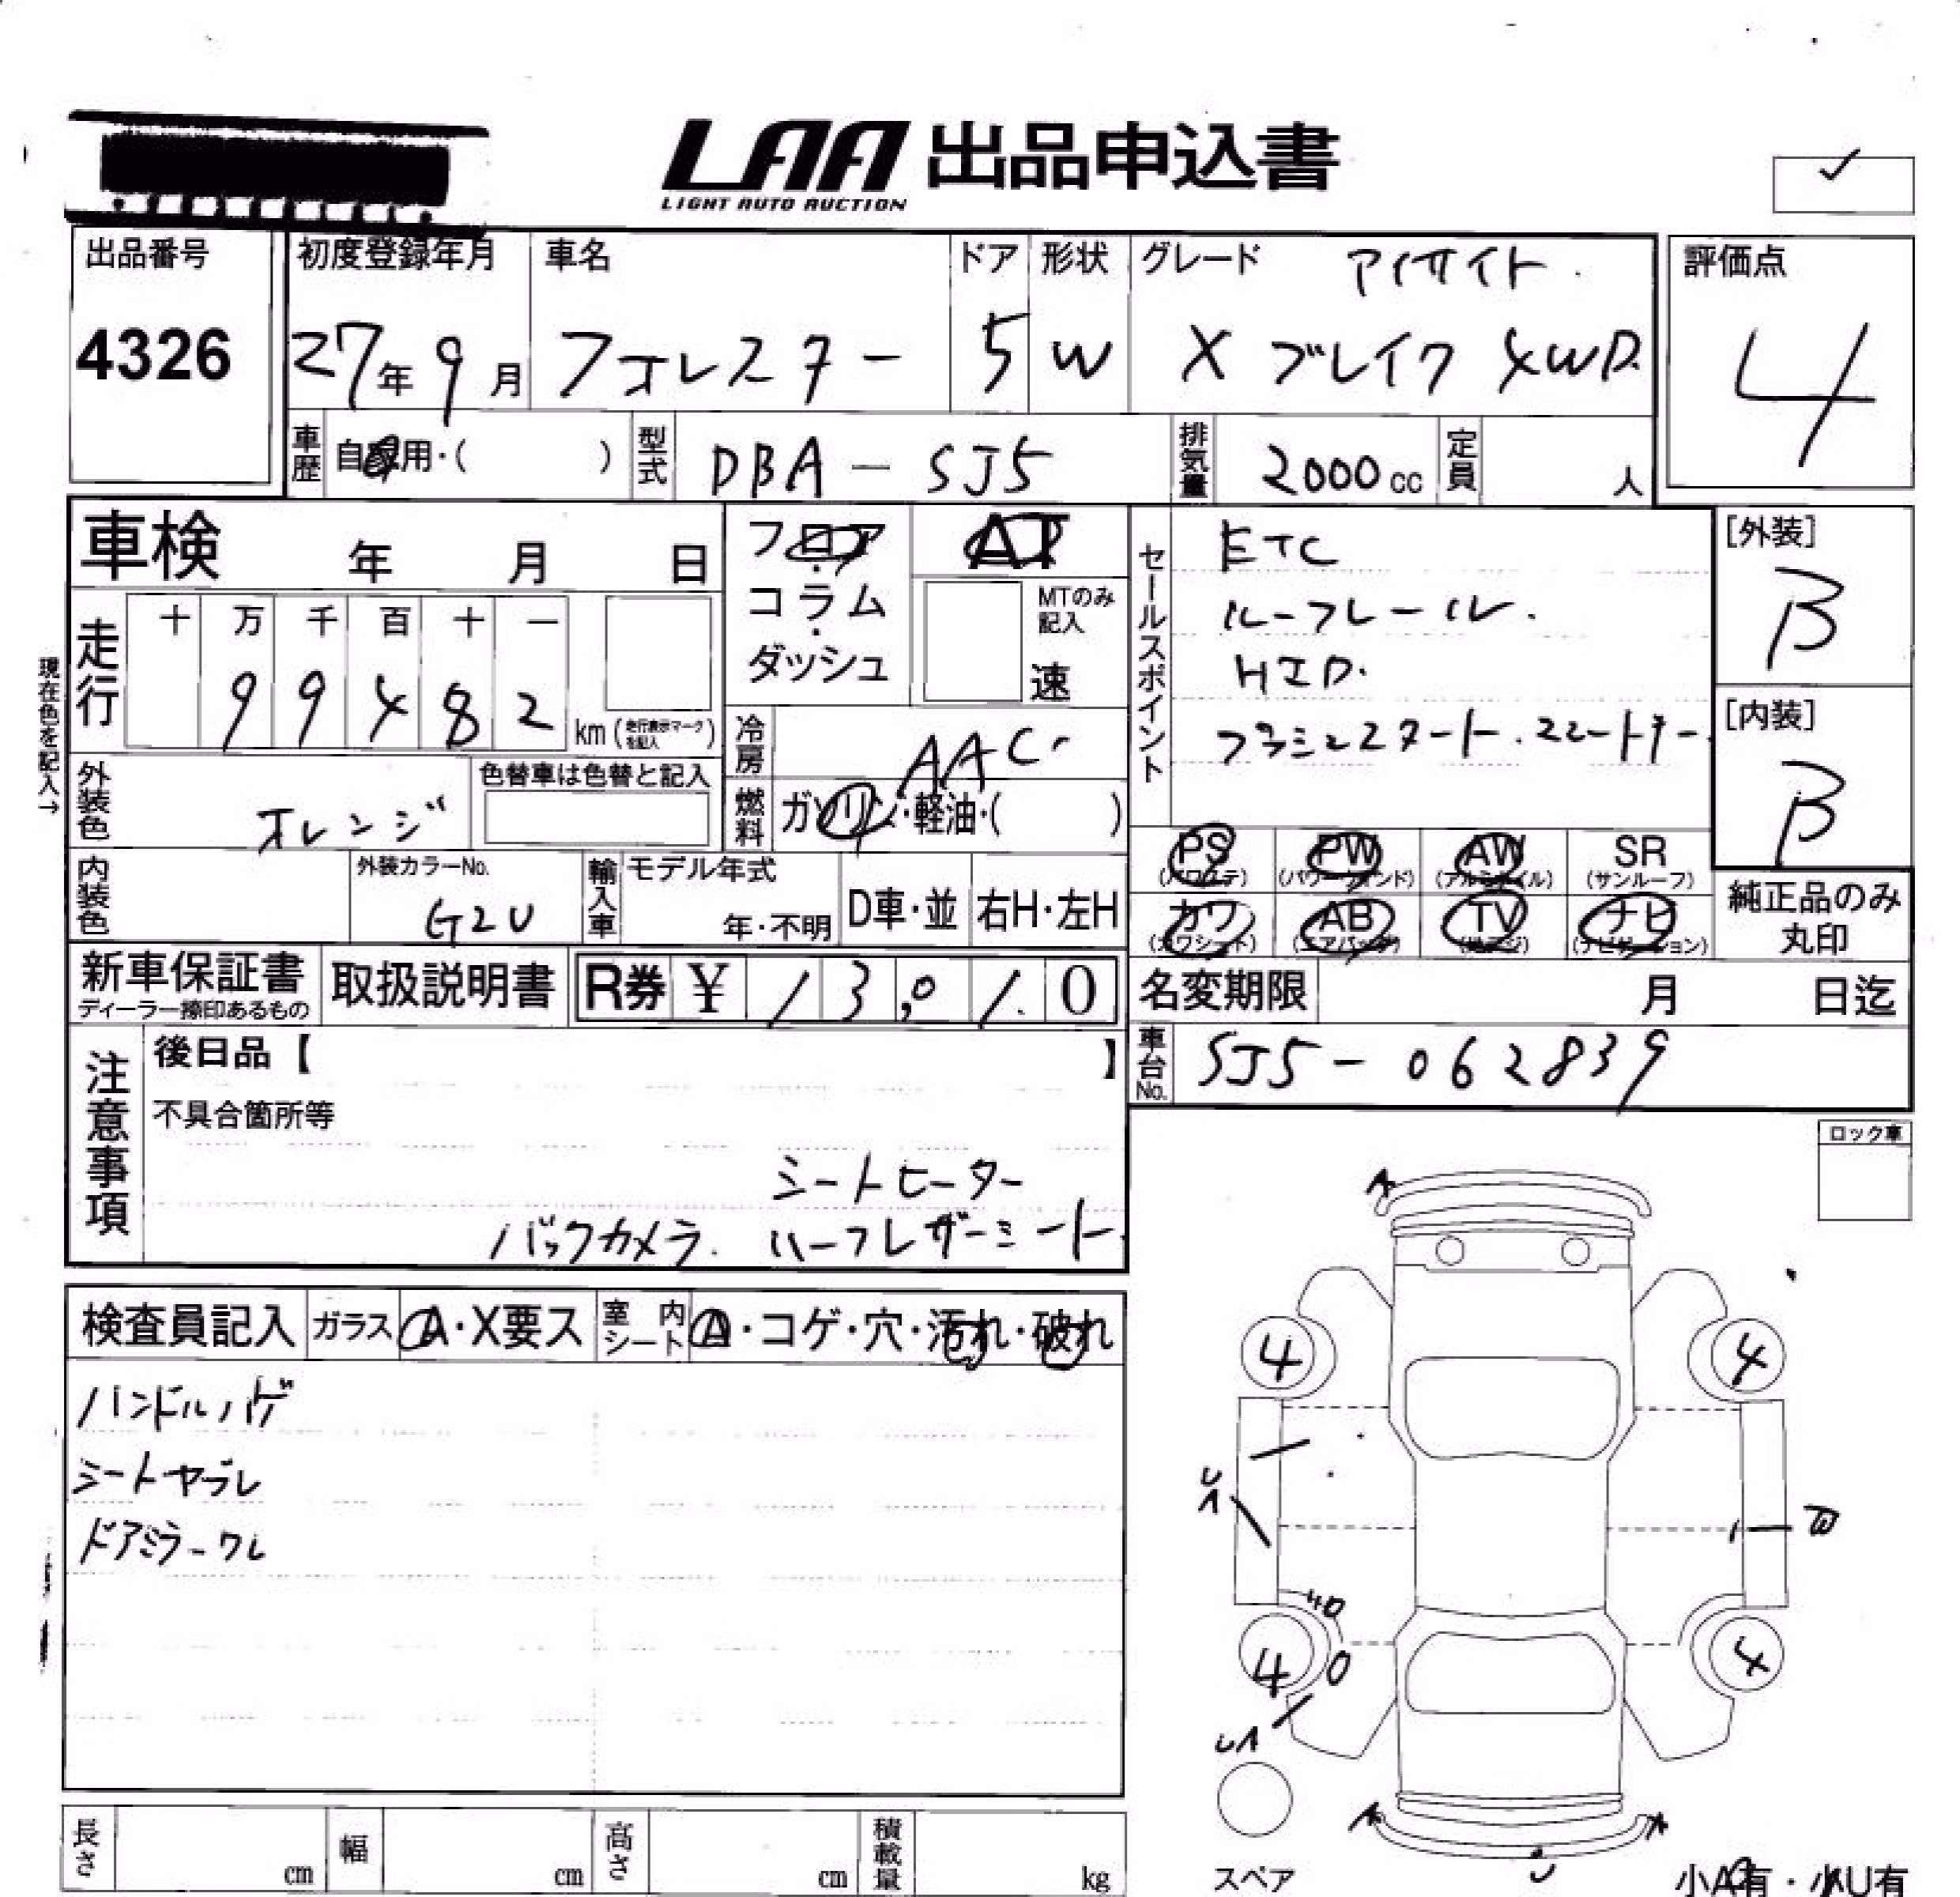 LAA 出品申込書
LIGHT AUTO AUCTION
出品番号 初度登録年月 車名 ドア 形状 グレード アイサイト 評価点
4326 27年 9月 フォレスター 5 W X ブレイク 4WD 4
車歴 自家用・( ) 型式 DBA-SJ5 排気量 2000cc 定員 人
車検 年 月 日
フロア・コラム・ダッシュ
AT
MTのみ記入
速
セールスポイント
ETC
ルーフレール.
HID.
プッシュスタート.スマートキー.
[外装]
B
[内装]
B
現在色を記入→
走行
十 万 千 百 十 一
9 9 4 8 2 km (走行表示マークを記入)
冷房 AAC
燃料 ガソリン・軽油・( )
外装色 オレンジ
色替車は色替と記入
内装色
外装カラーNo. G2U
輸入車 モデル年式 年・不明 D車・並 右H・左H
PS (パワステ) PW (パワーウィンド) AW (アルミホイル) SR (サンルーフ)
カワ (カワシート) AB (エアバッグ) TV (地デジ) ナビ (ナビゲーション)
純正品のみ丸印
新車保証書
ディーラー捺印あるもの
取扱説明書
R券 ¥ 13,010
名変期限 月 日迄
車台No. SJ5-062839
注意事項
後日品【 】
不具合箇所等
シートヒーター
バックカメラ. ハーフレザーシート
ロック車
検査員記入 ガラス A・X要ス 室内シート A・コゲ・穴・汚れ・破れ
ハンドルハゲ
シートヤブレ
ドアミラーワレ
A
4 4
4 4
A A
U
スペア
小A有・小U有
長さ cm 幅 cm 高さ cm 積載量 kg